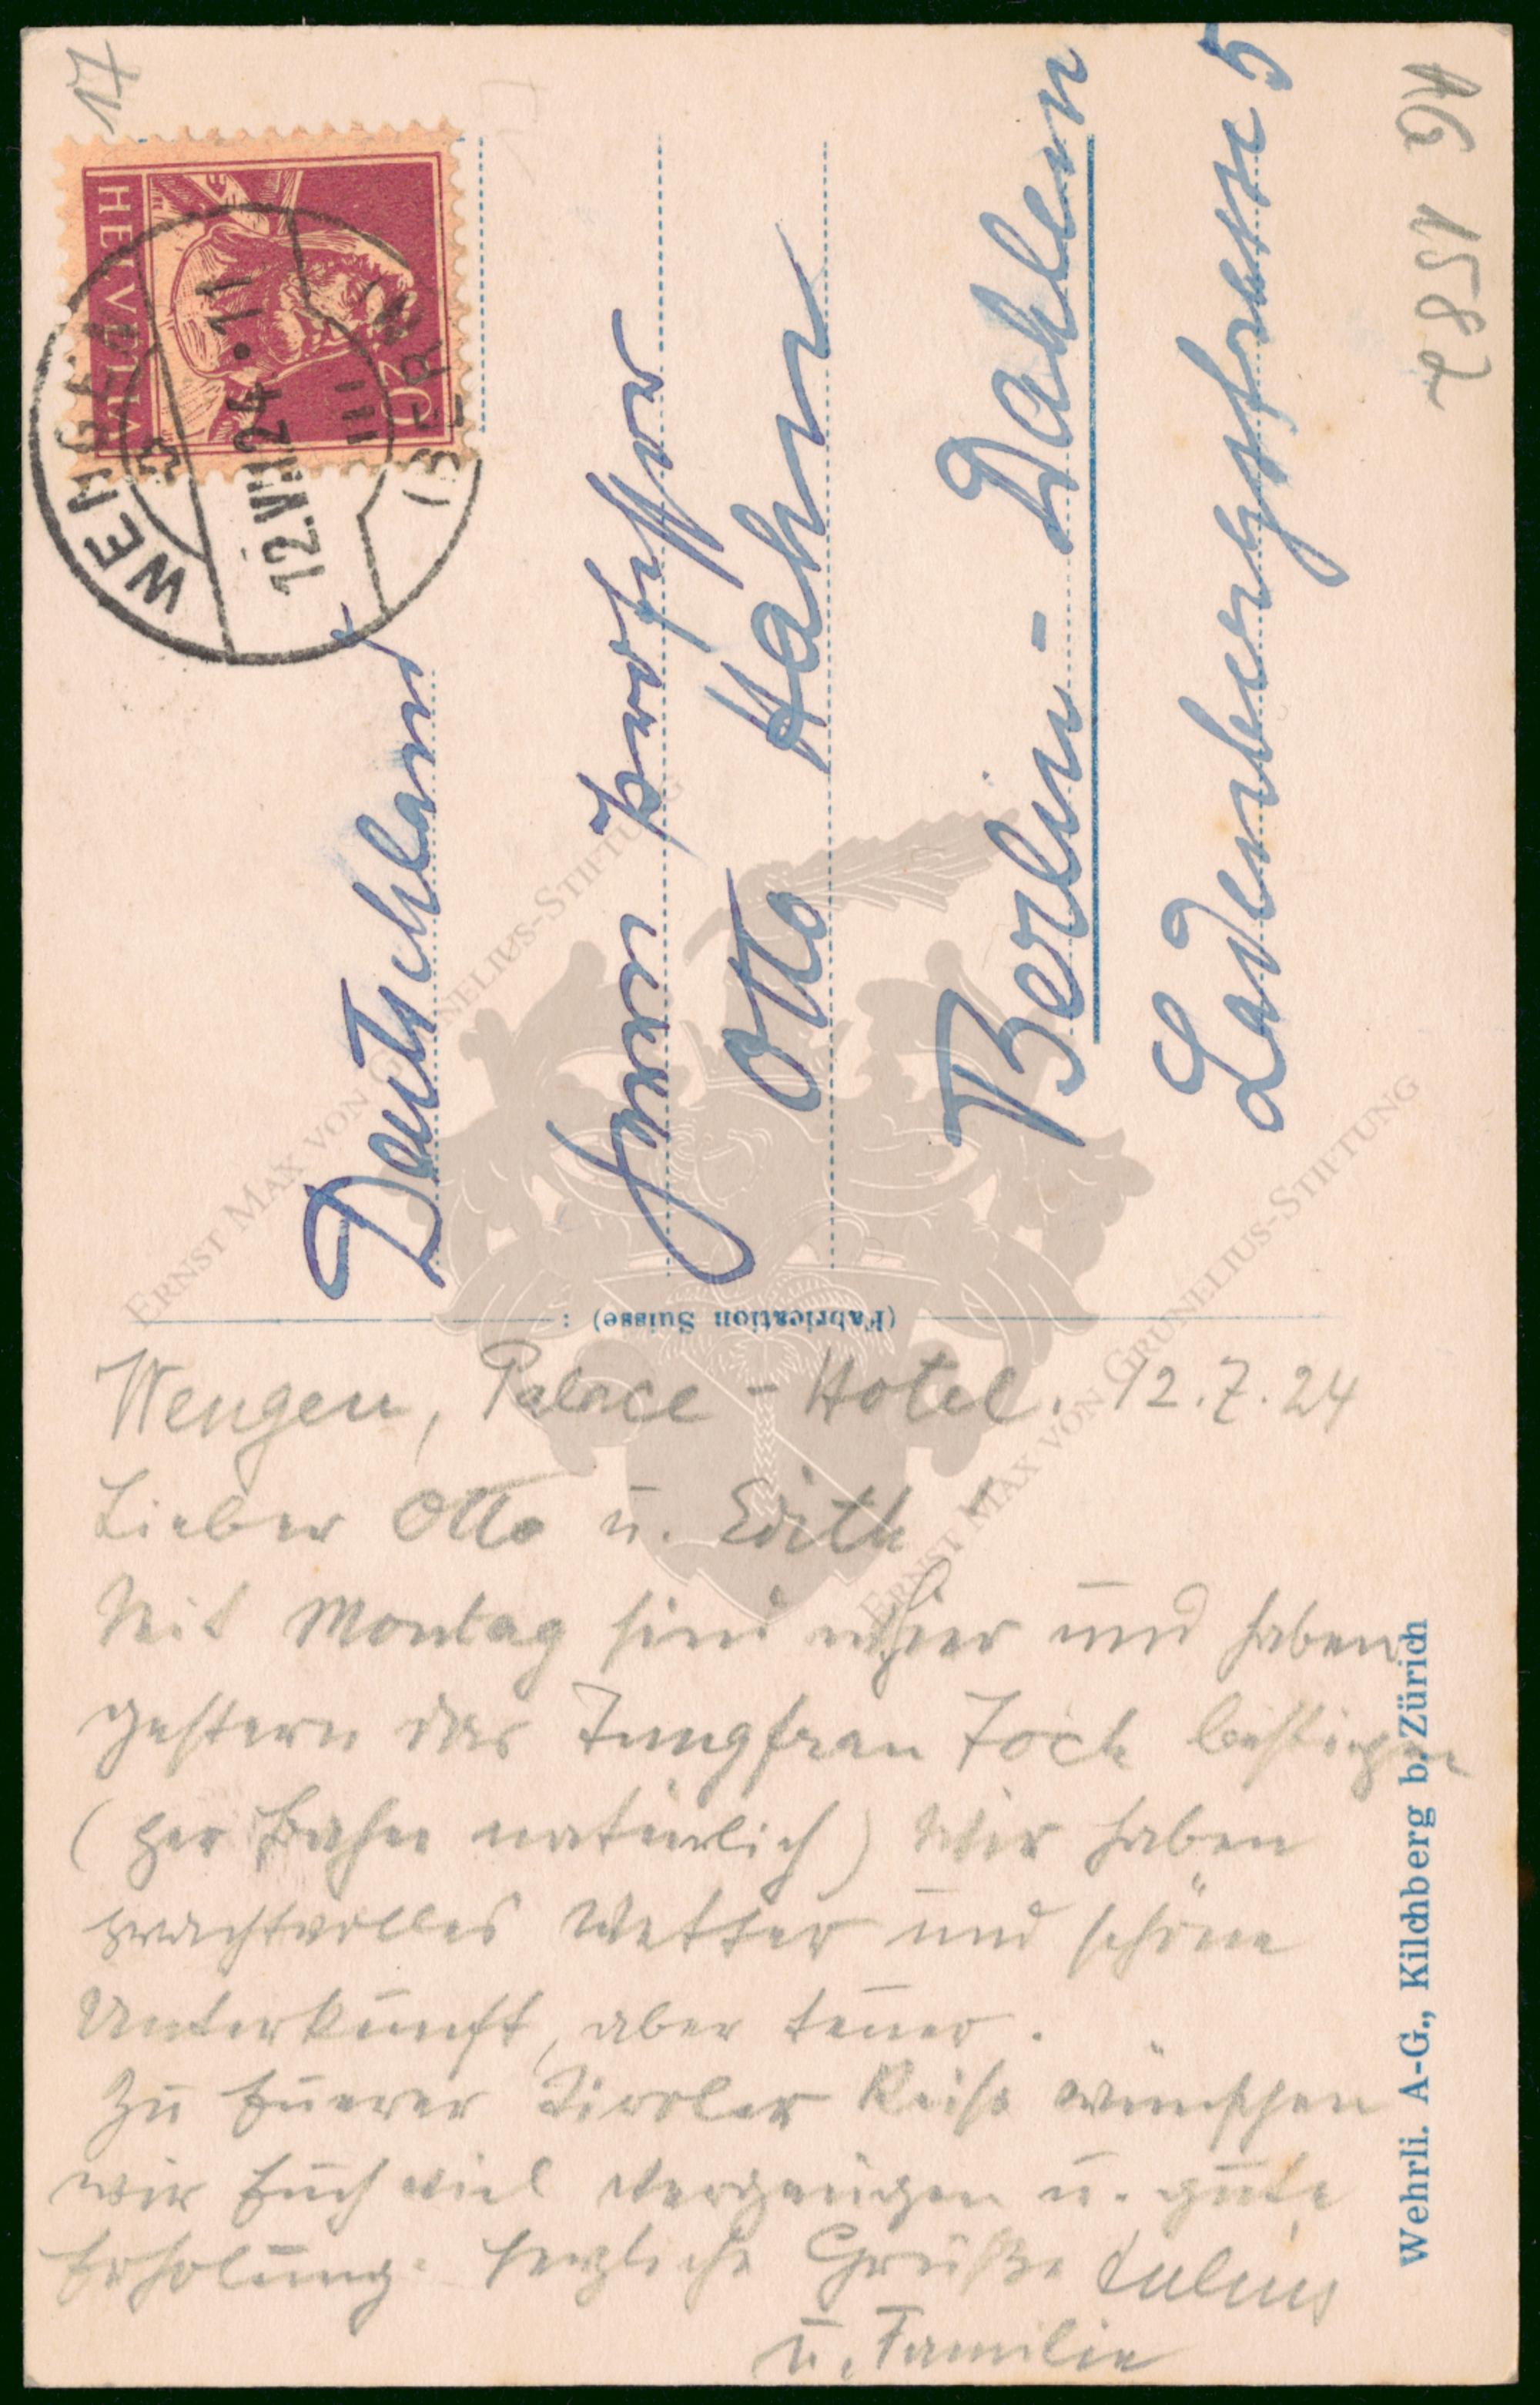 17
HELVETIA
20
WENGEN
12.VII.24·11
III
(BERN)
AG 1582
Deutschland
Herrn Professor
Otto Hahn
Berlin-Dahlem
Ladenbergstrasse 5
(Fabrication Suisse) :
Wengen, Palace-Hotel. 12.7.24
Lieber Otto u. Edith
Seit Montag sind wir hier und haben
gestern das Jungfrau Joch bestiegen
(per Bahn natürlich) Wir haben
prachtvolles Wetter und schöne
Unterkunft, aber teuer.
Zu Euerer Tiroler Reise wünschen
wir Euch viel Vergnügen u. gute
Erholung. Herzliche Grüße Julius
u. Familie
Wehrli. A-G., Kilchberg b. Zürich
ERNST MAX VON GRUNELIUS-STIFTUNG
ERNST MAX VON GRUNELIUS-STIFTUNG